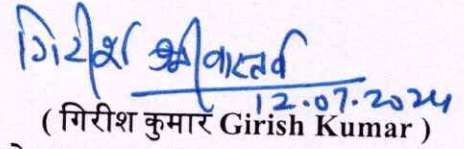 गिरीश श्रीवास्तव
12.07.2024
( गिरीश कुमार Girish Kumar )